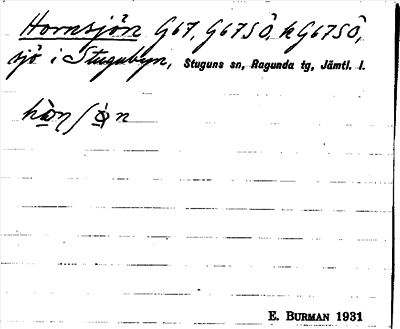 Hornsjön G67, G67SÖ, kG67SÖ,
sjö i Stugubyn, Stuguns sn, Ragunda tg, Jämtl. l.
E. BURMAN 1931